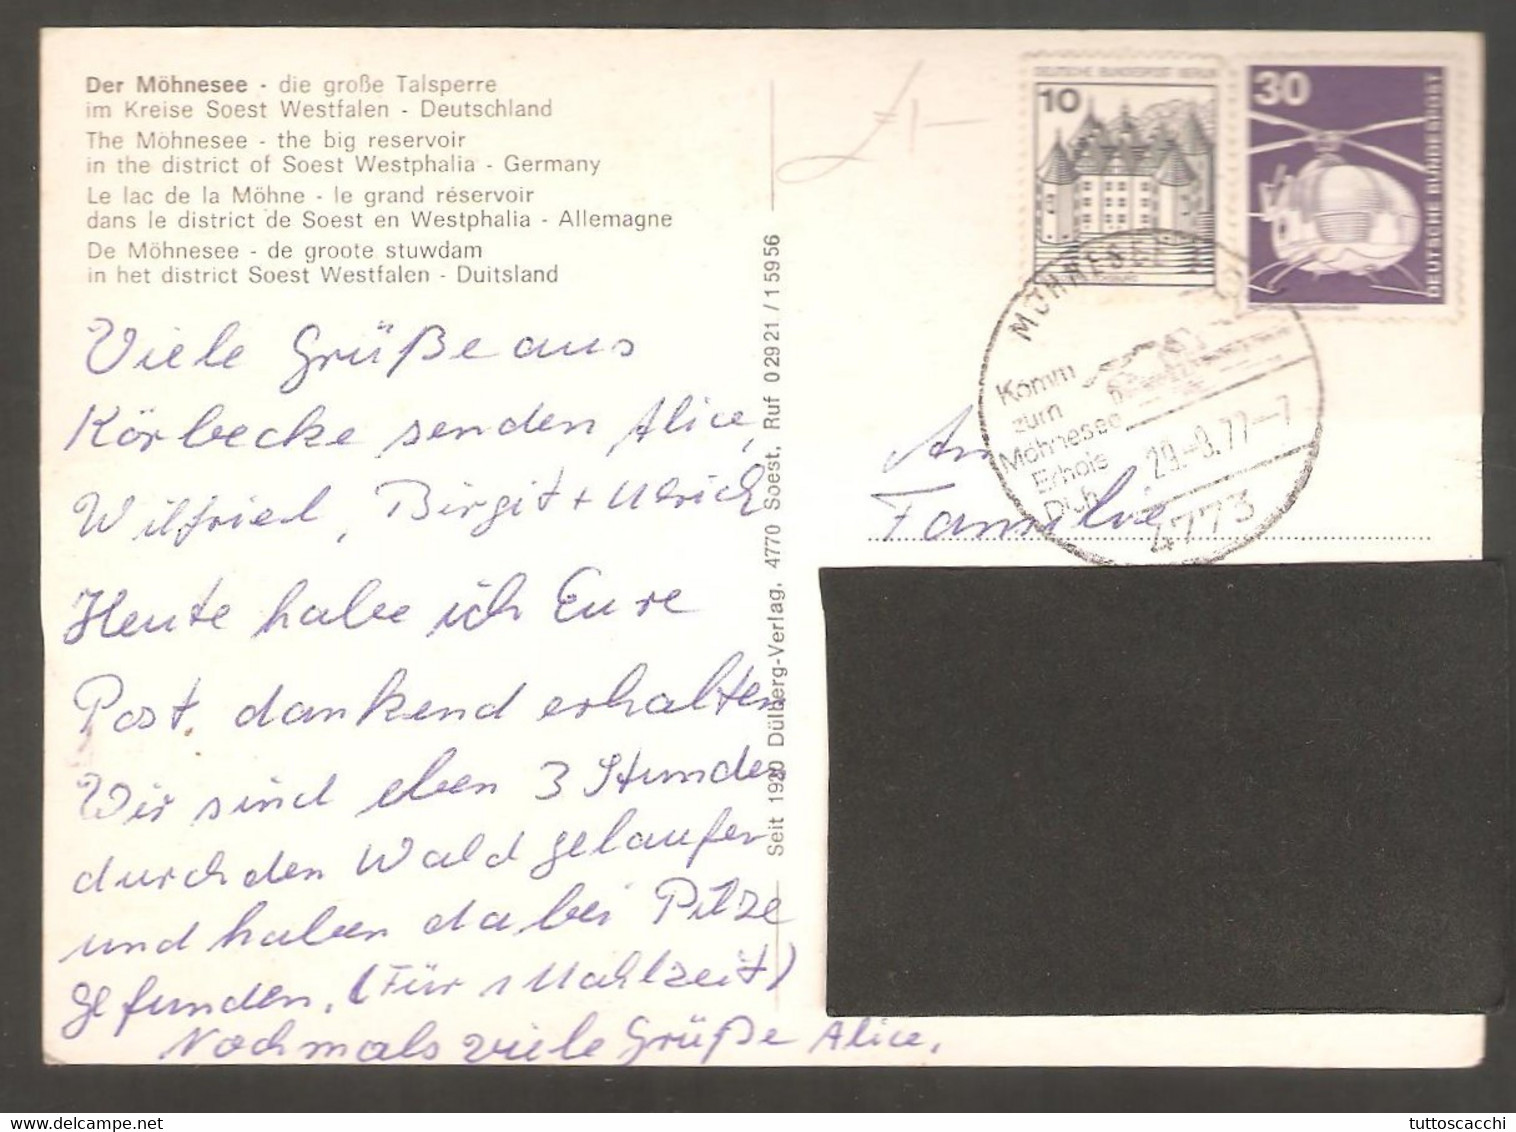 Der Möhnesee - die große Talsperre
im Kreise Soest Westfalen - Deutschland
The Möhnesee - the big reservoir
in the district of Soest Westphalia - Germany
Le lac de la Möhne - le grand réservoir
dans le district de Soest en Westphalia - Allemagne
De Möhnesee - de groote stuwdam
in het district Soest Westfalen - Duitsland
Viele Grüße aus
Körbecke senden Alice,
Wilfried, Birgit + Ulrich
Heute habe ich Eure
Post. dankend erhalten
Wir sind eben 3 Stunden
durch den Wald gelaufen
und haben dabei Pilze
gefunden, (Für 1 Mahlzeit)
Nochmals viele Grüße Alice.
Seit 1920 Dülberg-Verlag, 4770 Soest, Ruf 0 29 21 / 1 59 56
DEUTSCHE BUNDESPOST BERLIN
10
30
DEUTSCHE BUNDESPOST
MÖHNESEE
Komm
zum
Möhnesee
Erhole
Dich
29.-9.77-7
4773
An
Familie
delcampe.net
tuttoscacchi